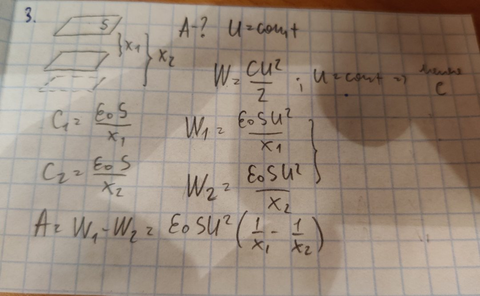 3.
S
x₁
x₂
A-? U=const
W = CU²/2 ; U=const =>
C
C₁ = ε₀S/x₁
W₁ = ε₀SU²/x₁
C₂ = ε₀S/x₂
W₂ = ε₀SU²/x₂
A = W₁ - W₂ = ε₀SU² (1/x₁ - 1/x₂)